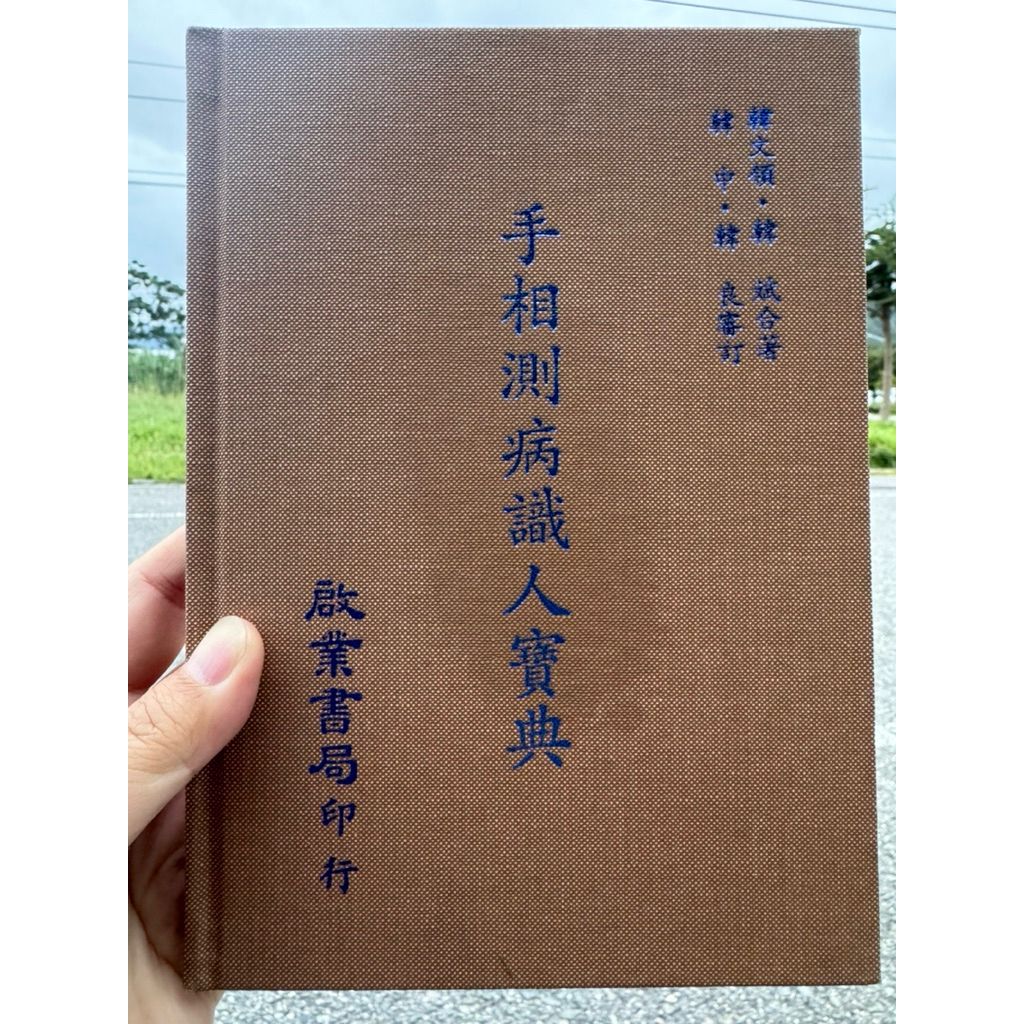 韓文領・韓 斌合著
韓 申・韓 良審訂
手相測病識人寶典
啟業書局印行